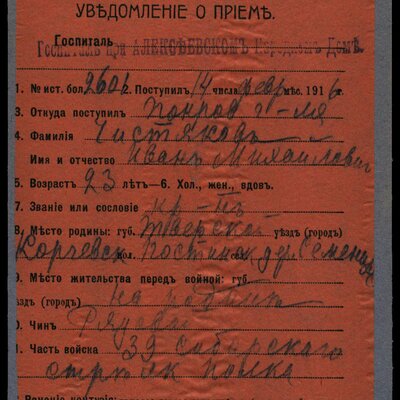 УВѢДОМЛЕНІЕ О ПРІЕМѢ.
Госпиталь Госпиталь при АЛЕКСѢЕВСКОМЪ Народномъ Домѣ.
1. № ист. бол. 2601 2. Поступилъ 14 числа февр мѣс. 1916 г.
3. Откуда поступилъ
4. Фамилія Чистяковъ
Имя и отчество Иванъ Михайловичъ
5. Возрастъ 23 лѣтъ—6. Хол., жен., вдов.
7. Званіе или сословіе кр-нъ
8. Мѣсто родины: губ. Тверской уѣздъ (городъ)
Корчевск вол. дер. Семен
9. Мѣсто жительства передъ войной: губ.
уѣздъ (городъ) на родинѣ
10. Чинъ Рядовой
11. Часть войска 39 сибирскаго
стрѣлк полка